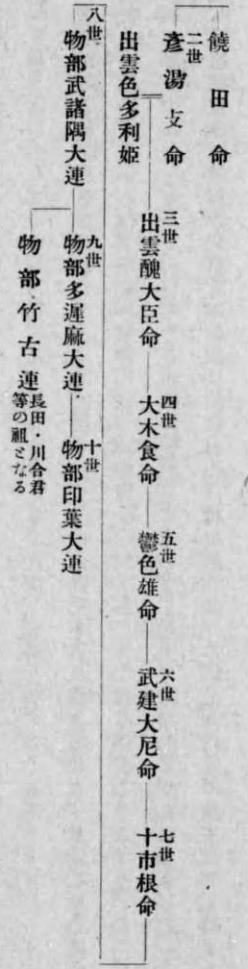 饒田命
二世
彥湯支命
出雲色多利姬
三世
出雲醜大臣命
四世
大木食命
五世
鬱色雄命
六世
武建大尼命
七世
十市根命
八世
物部武諸隅大連
九世
物部多遲麻大連
十世
物部印葉大連
物部竹古連
長田・川合君
等の祖となる